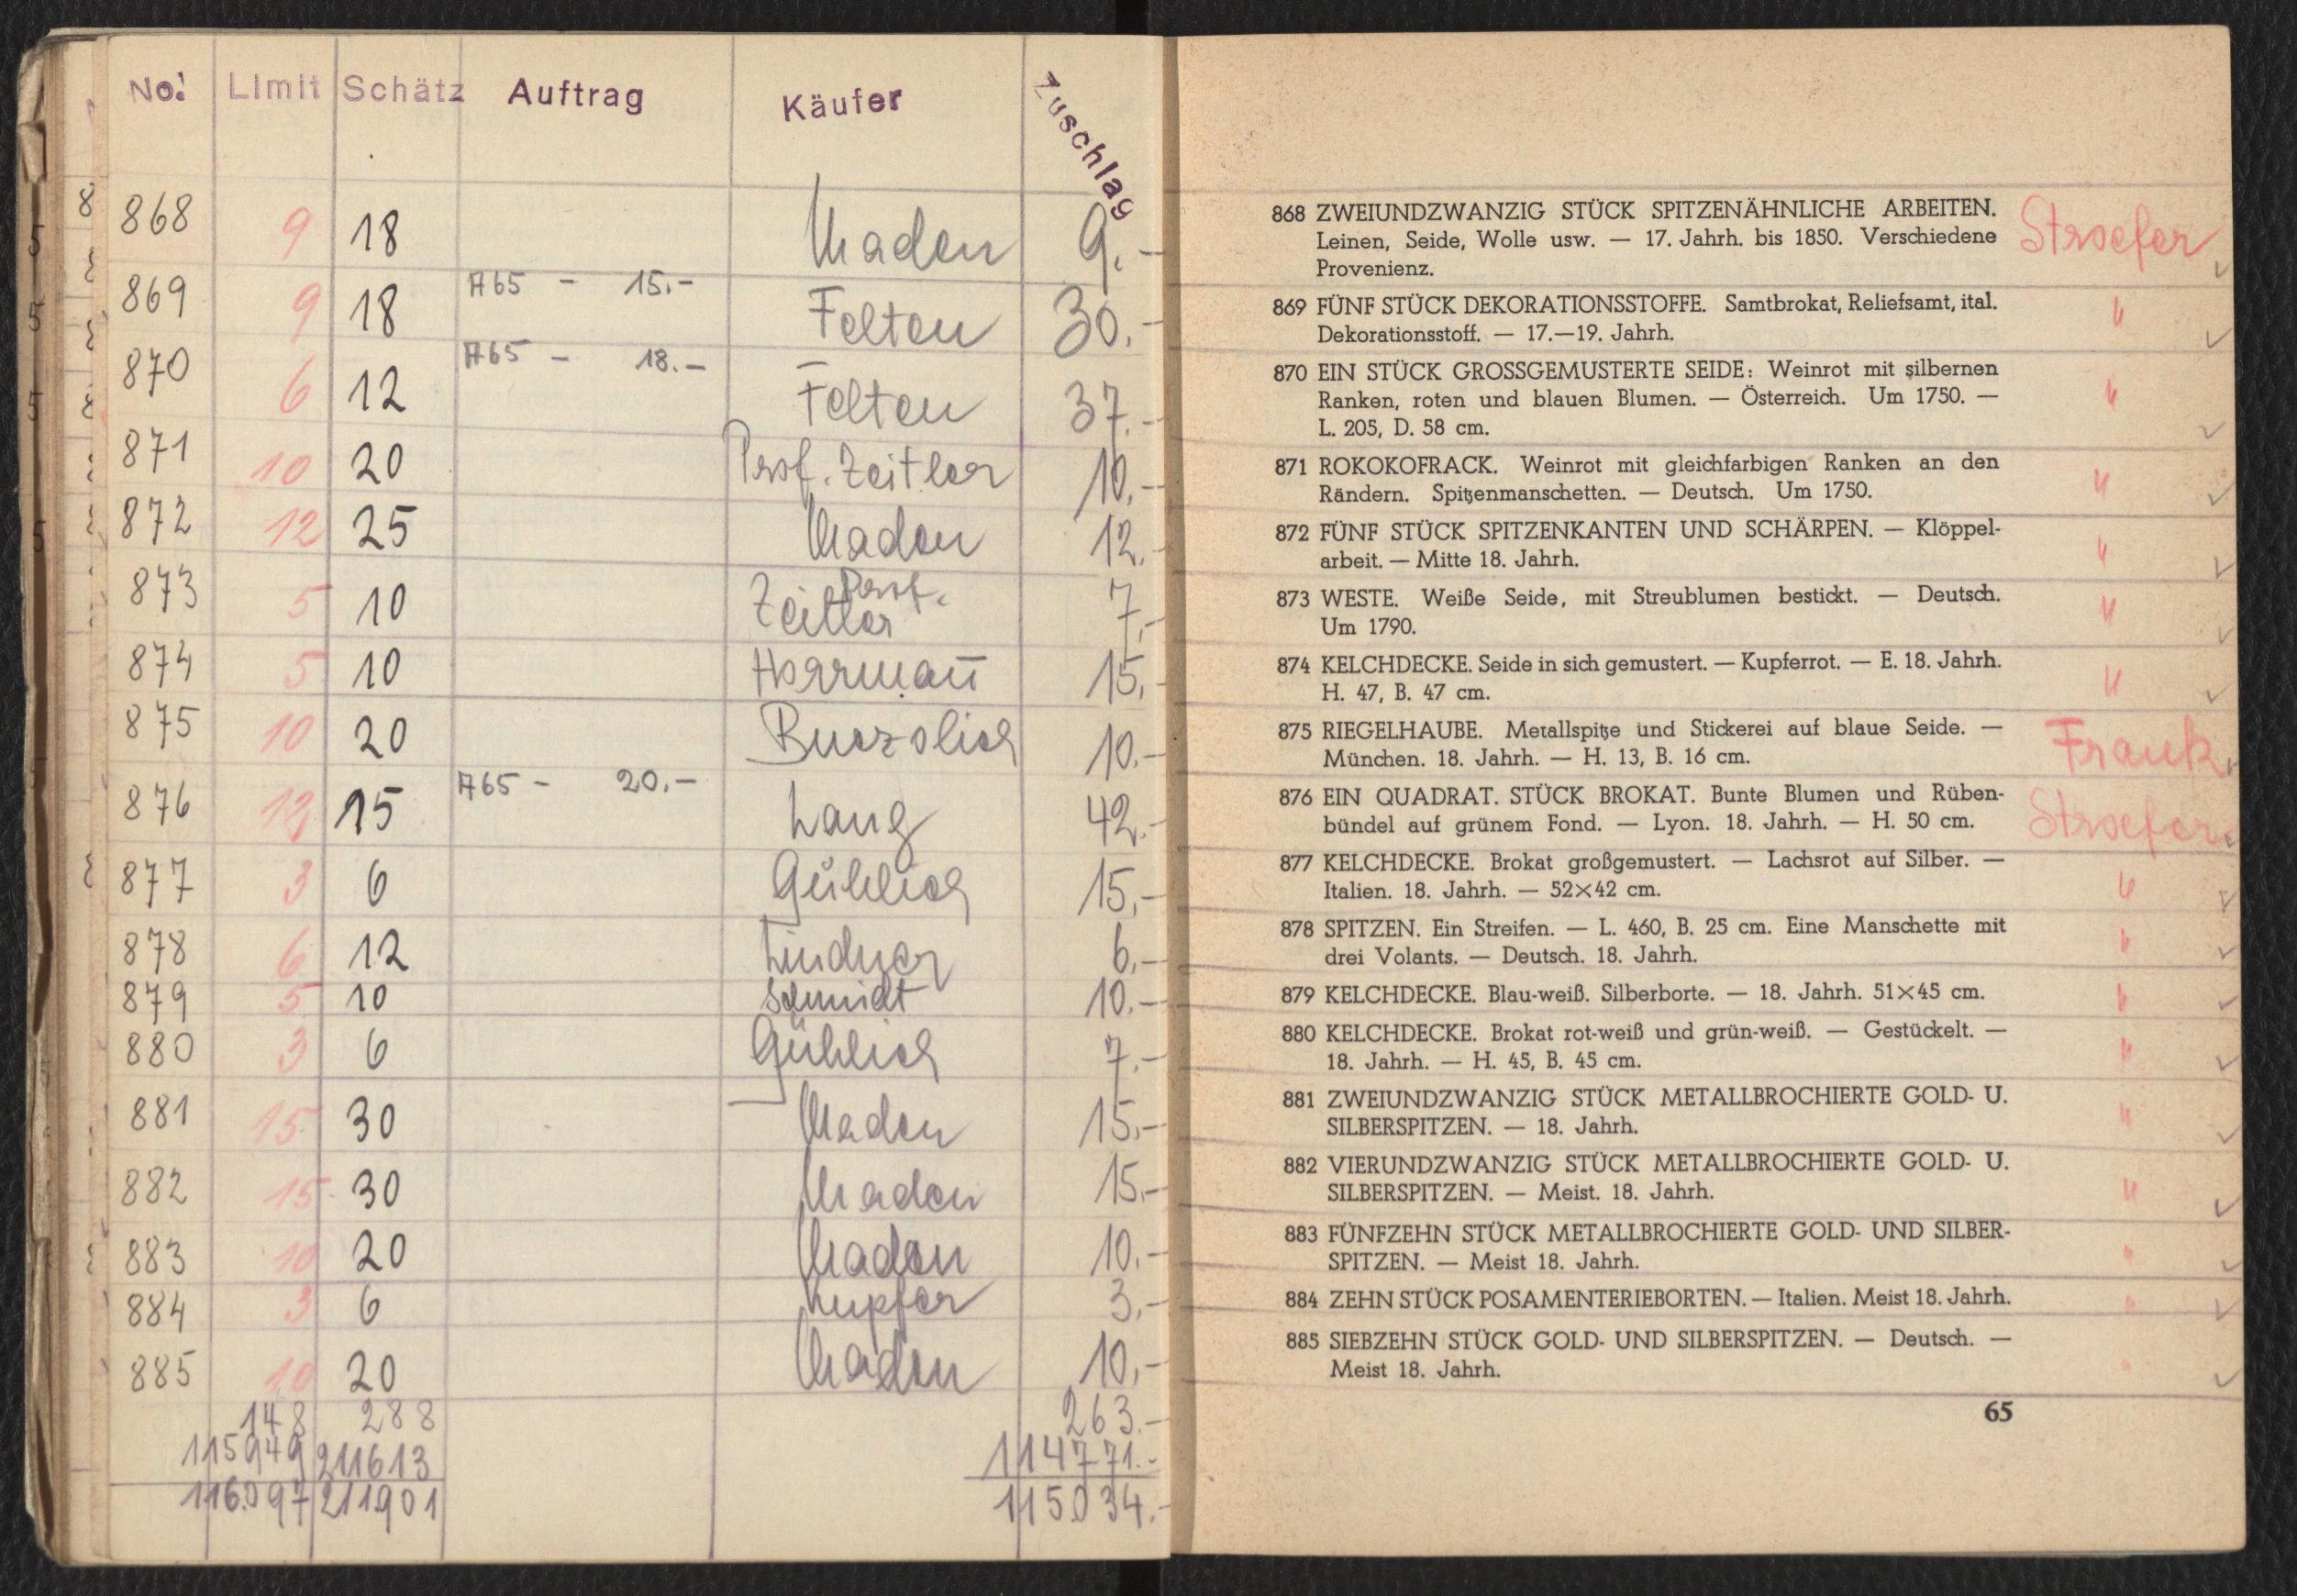 No. Limit Schätz Auftrag Käufer Zuschlag
868 9 18 Maden 9.-
869 9 18 A65 - 15.- Felten 30.-
870 6 12 A65 - 18.- Felten 37.-
871 10 20 Prof. Zeitler 10.-
872 12 25 Maden 12.-
873 5 10 Prof. Zeitler 7.-
874 5 10 Herrmañ 15.-
875 10 20 10.-
876 12 15 A65 - 20.- Lang 42.-
877 3 6 15.-
878 6 12 Lindner 6.-
879 5 10 Schmidt 10.-
880 3 6 7.-
881 15 30 Maden 15.-
882 15 30 Maden 15.-
883 10 20 Maden 10.-
884 3 6 Kupfer 3.-
885 10 20 Maden 10.-
148 288 263.-
115949 211613 114771.-
116.097 211901 115034.-
868 ZWEIUNDZWANZIG STÜCK SPITZENÄHNLICHE ARBEITEN. Stroefer
Leinen, Seide, Wolle usw. — 17. Jahrh. bis 1850. Verschiedene
Provenienz.
869 FÜNF STÜCK DEKORATIONSSTOFFE. Samtbrokat, Reliefsamt, ital. "
Dekorationsstoff. — 17.—19. Jahrh.
870 EIN STÜCK GROSSGEMUSTERTE SEIDE: Weinrot mit silbernen "
Ranken, roten und blauen Blumen. — Österreich. Um 1750. —
L. 205, D. 58 cm.
871 ROKOKOFRACK. Weinrot mit gleichfarbigen Ranken an den "
Rändern. Spitzenmanschetten. — Deutsch. Um 1750.
872 FÜNF STÜCK SPITZENKANTEN UND SCHÄRPEN. — Klöppel- "
arbeit. — Mitte 18. Jahrh.
873 WESTE. Weiße Seide, mit Streublumen bestickt. — Deutsch. "
Um 1790.
874 KELCHDECKE. Seide in sich gemustert. — Kupferrot. — E. 18. Jahrh. "
H. 47, B. 47 cm.
875 RIEGELHAUBE. Metallspitze und Stickerei auf blaue Seide. — Frank
München. 18. Jahrh. — H. 13, B. 16 cm.
876 EIN QUADRAT. STÜCK BROKAT. Bunte Blumen und Rüben- Stroefer
bündel auf grünem Fond. — Lyon. 18. Jahrh. — H. 50 cm.
877 KELCHDECKE. Brokat großgemustert. — Lachsrot auf Silber. — "
Italien. 18. Jahrh. — 52×42 cm.
878 SPITZEN. Ein Streifen. — L. 460, B. 25 cm. Eine Manschette mit "
drei Volants. — Deutsch. 18. Jahrh.
879 KELCHDECKE. Blau-weiß. Silberborte. — 18. Jahrh. 51×45 cm. "
880 KELCHDECKE. Brokat rot-weiß und grün-weiß. — Gestückelt. — "
18. Jahrh. — H. 45, B. 45 cm.
881 ZWEIUNDZWANZIG STÜCK METALLBROCHIERTE GOLD- U. "
SILBERSPITZEN. — 18. Jahrh.
882 VIERUNDZWANZIG STÜCK METALLBROCHIERTE GOLD- U. "
SILBERSPITZEN. — Meist. 18. Jahrh.
883 FÜNFZEHN STÜCK METALLBROCHIERTE GOLD- UND SILBER- "
SPITZEN. — Meist 18. Jahrh.
884 ZEHN STÜCK POSAMENTERIEBORTEN. — Italien. Meist 18. Jahrh. "
885 SIEBZEHN STÜCK GOLD- UND SILBERSPITZEN. — Deutsch. — "
Meist 18. Jahrh.
65